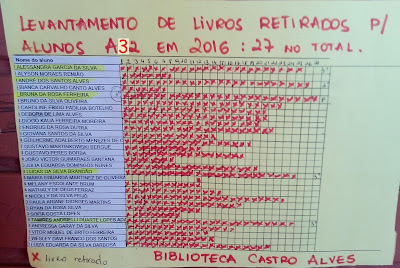 LEVANTAMENTO DE LIVROS RETIRADOS P/
ALUNOS A32 EM 2016 : 27 NO TOTAL.
Nome do aluno
ALESSANDRA GARCIA DA SILVA
ALYSON MORAES REMIÃO
ANDRÉ DOS SANTOS ALVES
BIANCA CARVALHO CANTO ALVES
BRUNA DA ROSA FERREIRA
BRUNO DA SILVA OLIVEIRA
CAROLINE FREIO PADILHA BOTELHO
DEBORA DE LIMA ALVES
DIOGO KAUÃ FERREIRA MOREIRA
ENDRIUS DA ROSA DUTRA
GIOVANA SANTOS DA SILVA
GUILHERME ADALBERTO MENEZES DE
GUSTAVO MARTINKOWSKI BERGUE
GUSTAVO PERES BORBA
JOÃO VICTOR GUIMARAES SANTANA
JULIA EDUARDA DOMINGOS NUNES
LUCAS DA SILVA BRANDÃO
MARIA EDUARDA MARTINEZ DE OLIVEIRA
MELANY ESCOLANTE BRUM
NATHALY DE DEUS FERRAZ
NICOLLY DA SILVA
PAULA ARIANI DIORGES MARTINS
RYAN DA ROSA SILVA
SOFIA COSTA LOPES
DUARTE LOPES
ANDRESSA GARAY DA SILVA
VITOR MIGUEL DE BRITO FERREIRA
WESLEY DAVI FRANCO DOS SANTOS
LUIZA EDUARDA DA SILVA BARBOZA
X livro retirado
BIBLIOTECA CASTRO ALVES